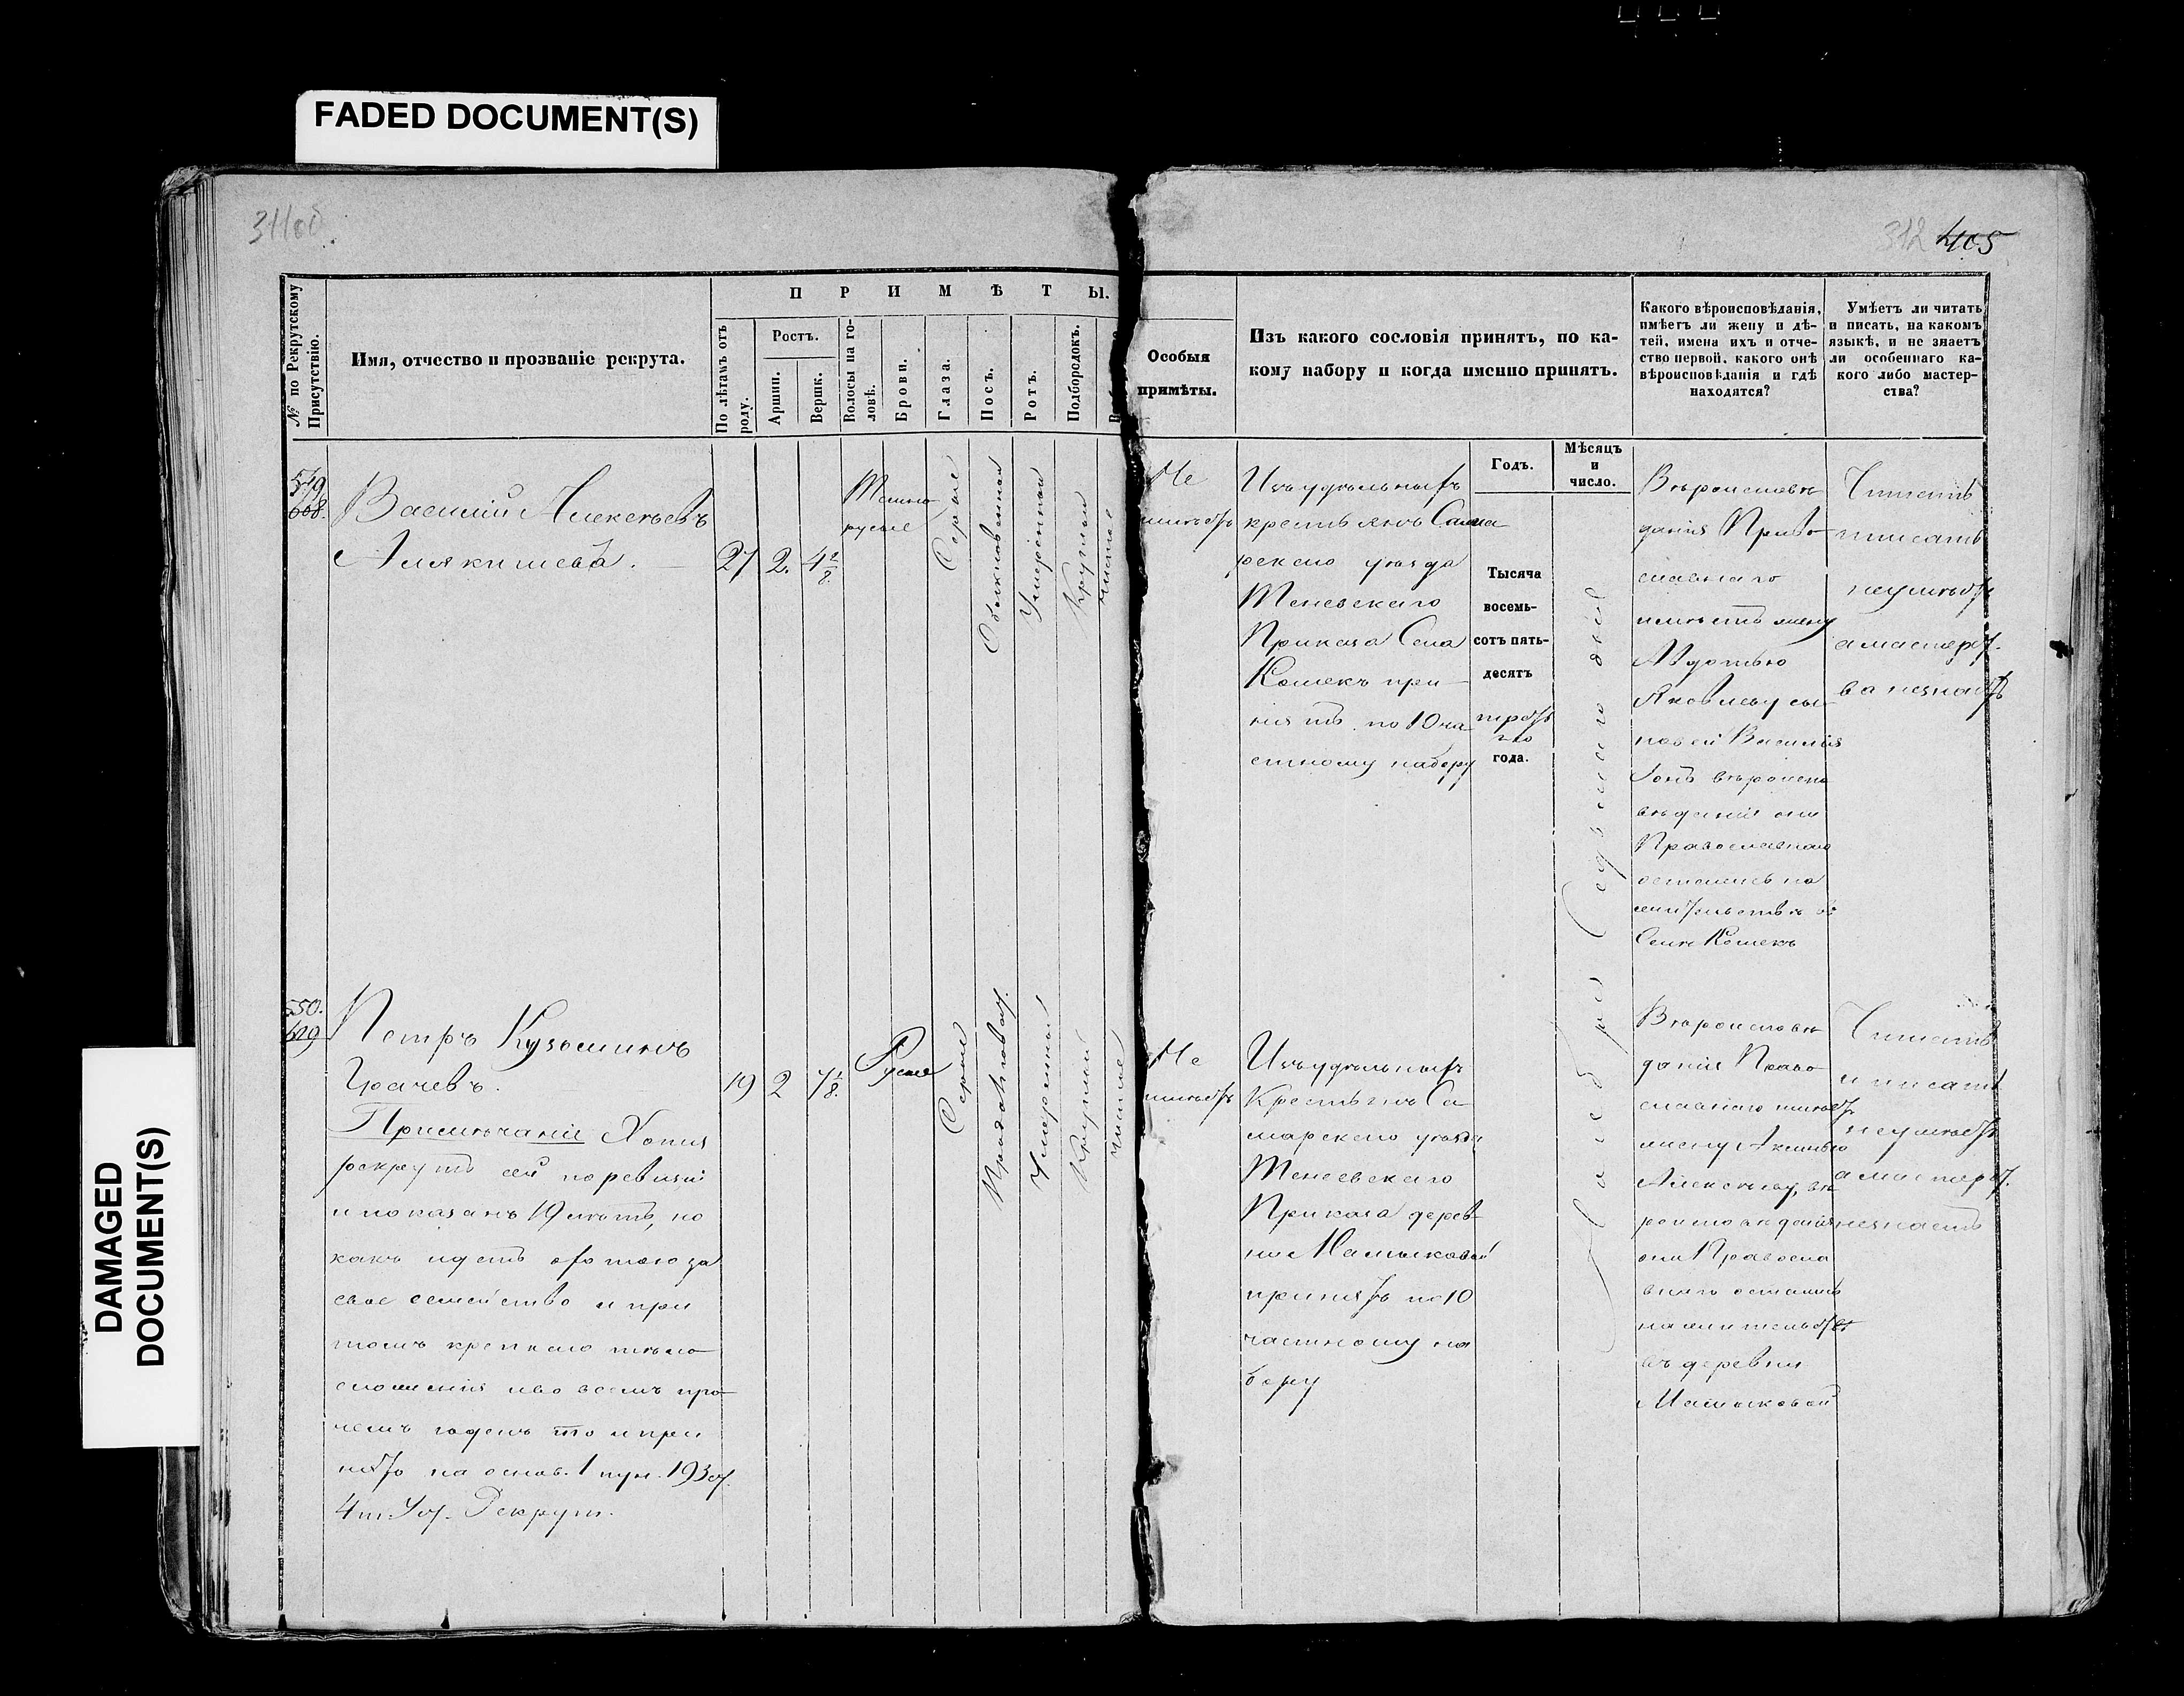 FADED DOCUMENT(S)
DAMAGED
DOCUMENT(S)
311об.
312 405
№ по Рекрутскому
Присутствію.
Имя, отчество и прозваніе рекрута.
ПРИМѢТЫ.
По лѣтамъ отъ
роду.
Ростъ.
Аршин.
Вершк.
Волосы на го-
ловѣ.
Брови.
Глаза.
Носъ.
Ротъ.
Подбородокъ.
Особыя
примѣты.
Изъ какого сословія принятъ, по ка-
кому набору и когда именно принятъ.
Какого вѣроисповѣданія,
имѣетъ ли жену и дѣ-
тей, имена ихъ и отче-
ство первой, какого онѣ
вѣроисповѣданія и гдѣ
находятся?
Умѣетъ ли читать
и писать, на какомъ
языкѣ, и не знаетъ
ли особеннаго ка-
кого либо мастер-
ства?
Годъ.
Мѣсяцъ
и
число.
549
608.
Василій Алексѣевъ
Алякишевъ.
27
2.
4 2/8.
Темно
русые
Сѣрые
Обыкновенный
Умѣренный
Круглый
чистое
Не
имѣетъ
Изъ удѣльныхъ
крестьянъ Сама
рскаго уѣзда
Теневскаго
Приказа Села
Кошекъ при
нятъ по 10 ча
стному набору
Тысяча
восемь-
сотъ пять-
десятъ
третья
го
года.
Декабря Седьмаго дня
Вѣроисповѣ
данія Право
славнаго
имѣетъ жену
Авдотью
Яковлеву сы
новей Василія
вѣроиспо
вѣданія они
Православнаго
остались на
жительствѣ въ
Селѣ Кошекъ
Читать
писать
неумѣетъ
а мастерст.
ва незнаетъ
550.
609
Петръ Кузьминъ
Грачевъ.
19
2
7 1/8.
Русые
Сѣрые
Продолговат.
Умѣренный
Круглый
чистое
Примѣчаніе Хотя
рекрутъ сей по ревизіи
и показанъ 19 лѣтъ, но
какъ идетъ охотою за
свое семейство и при
томъ крепкаго тѣло
сложенія и во всемъ про
чемъ годенъ то и при
нятъ на основ. 1 пун. 193 ст.
4 т. Уст. Рекрут.
Не
имѣетъ
Изъ удѣльныхъ
Крестьянъ Са
марскаго уѣзда
Теневскаго
Приказа дерев
ни Мамыковой
принятъ по 10
частному на
бору
Вѣроисповѣ
данія Право
славнаго имѣетъ
жену Аксинью
Алексѣеву, вѣ
роисповѣданія
они Правосла
внаго остались
на жительствѣ
въ деревни
Мамыковой
Читать
и писать
неумѣетъ
а мастерст.
незнаетъ